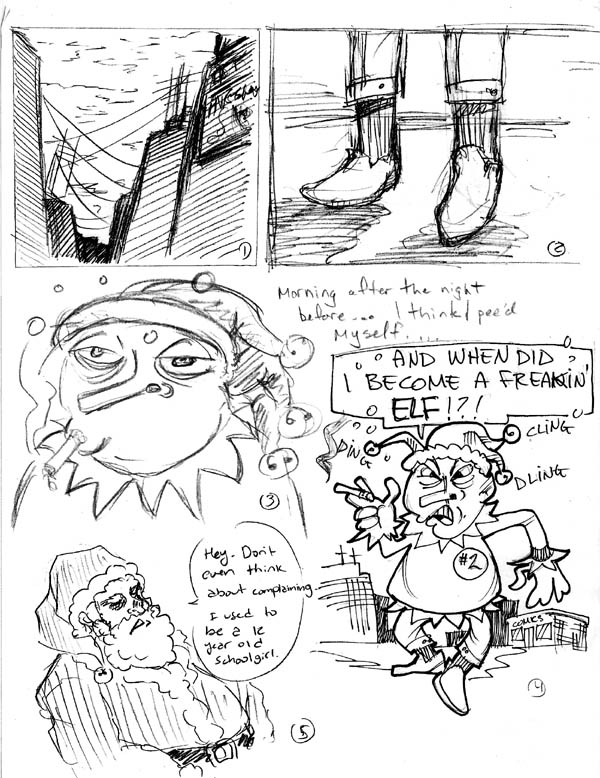 1
2
Morning after the night
before... I think I pee'd
Myself....
3
AND WHEN DID
I BECOME A FREAKIN'
ELF!?!
DING
CLING
DLING
#2
COMICS
4
Hey. Don't
even think
about complaining.
I used to
be a 12
year old
schoolgirl.
5